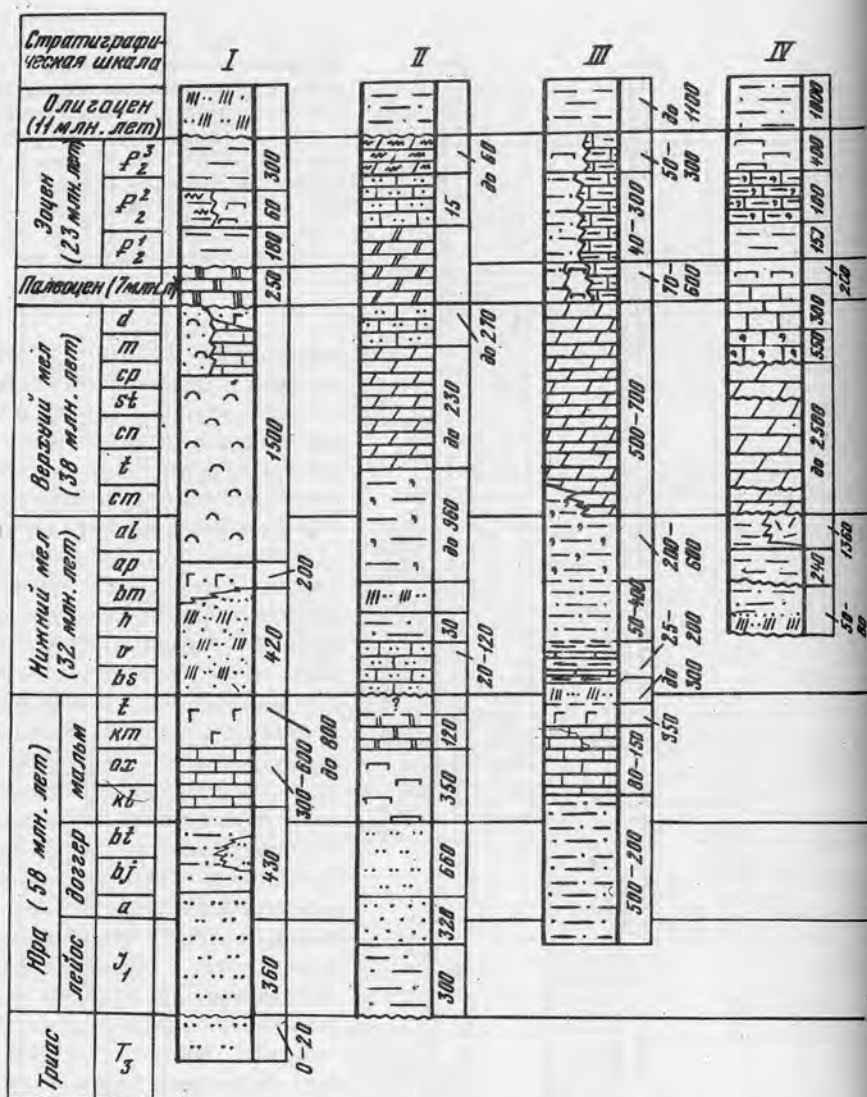 Стратиграфи-
ческая шкала
I
II
III
IV
Олигоцен
(11 млн. лет)
Эоцен
(23 млн. лет)
P₂³
P₂²
P₂¹
Палеоцен (7 млн. л)
Верхний мел
(38 млн. лет)
d
m
cp
st
cn
t
cm
Нижний мел
(32 млн. лет)
al
ap
bm
h
v
bs
Юра (58 млн. лет)
мальм
t
км
ox
kl
доггер
bt
bj
a
лейас
J₁
Триас
T₃
300
60
180
250
1500
200
420
300-600
до 800
430
360
0-20
до 60
15
до 270
до 230
до 960
30
20-120
?
120
350
660
328
300
до 1100
50-
300
40-300
70-
600
500-700
200-
600
50-400
25-
200
до
300
350
80-150
500-200
1000
400
100
157
220
300
550
до 2500
1360
240
50-